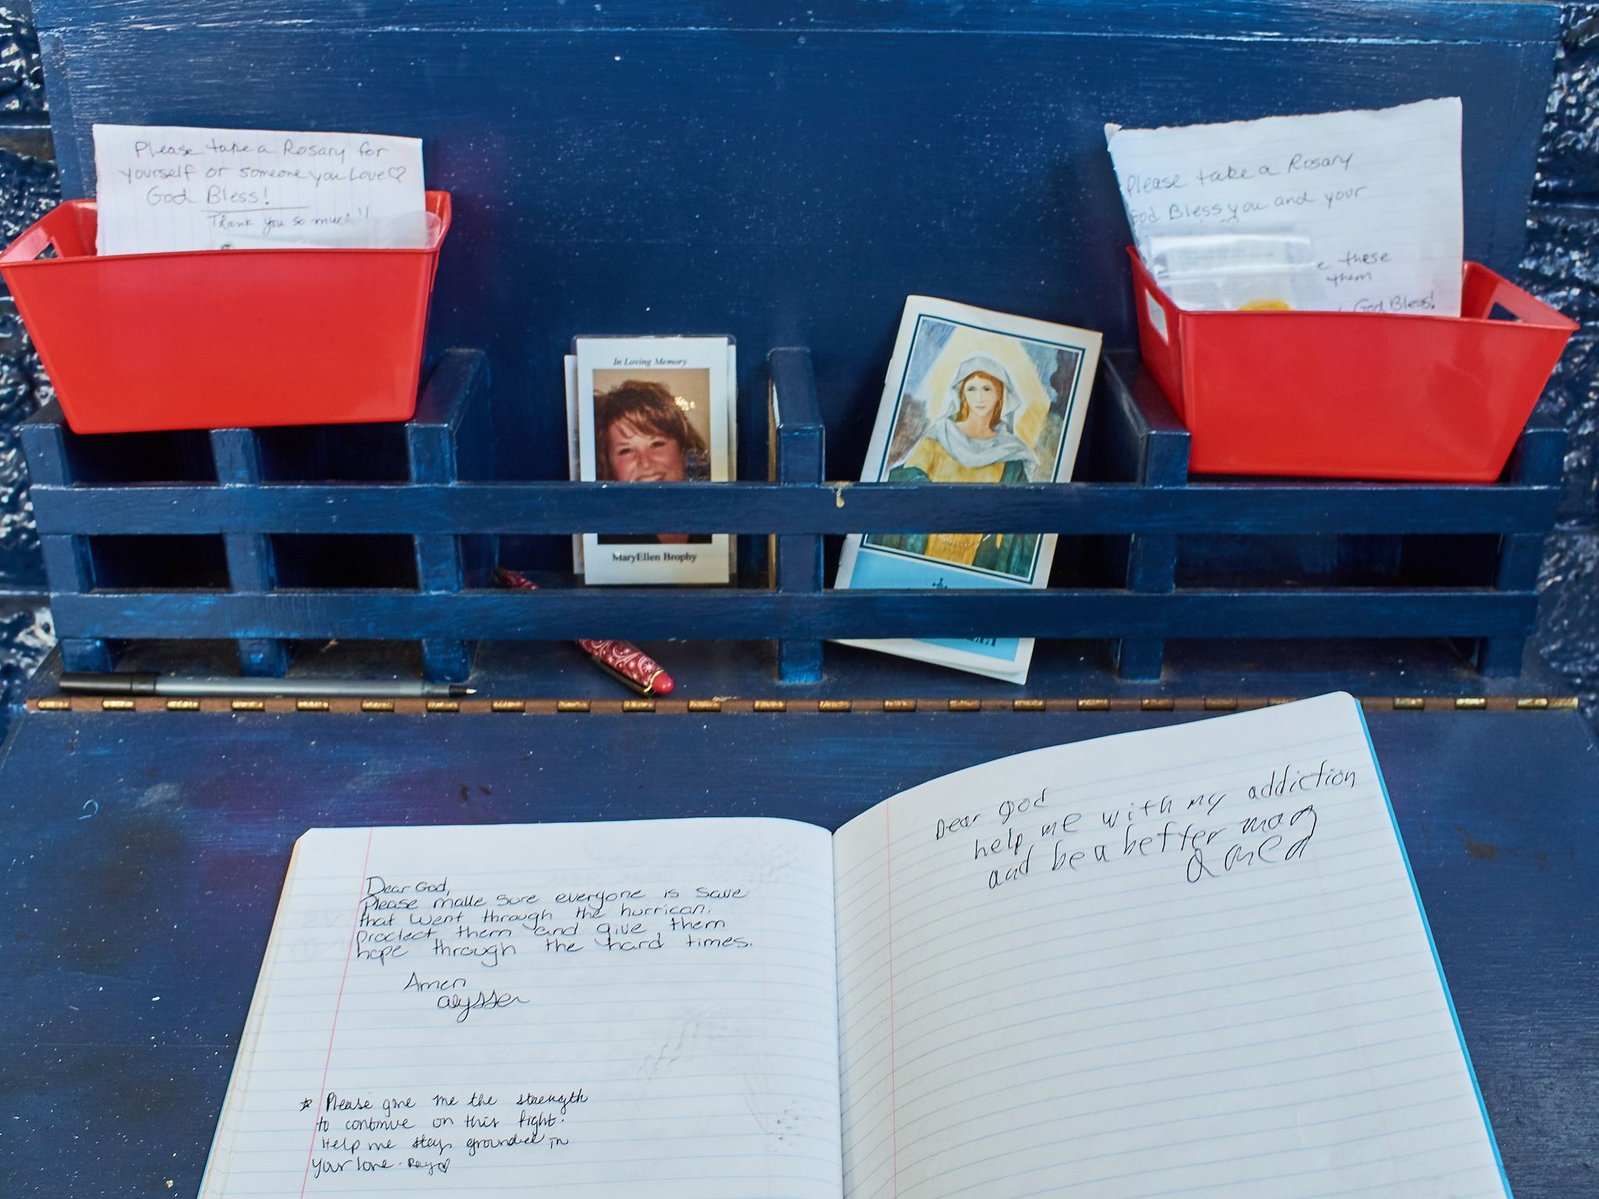 Please take a Rosary for
yourself or someone you Love♡
God Bless!
Thank you so much!!
Please take a Rosary
God Bless you and your
these
them
God Bless!
In Loving Memory
MaryEllen Brophy
Dear God,
Please make sure everyone is save
that went through the hurrican.
proclect them and give them
hope through the hard times.
Amen
alyssa
☆ Please give me the strength
to continue on this fight.
Help me stay grounded in
your love. Ray♡
Dear god
help me with my addiction
and be a better man